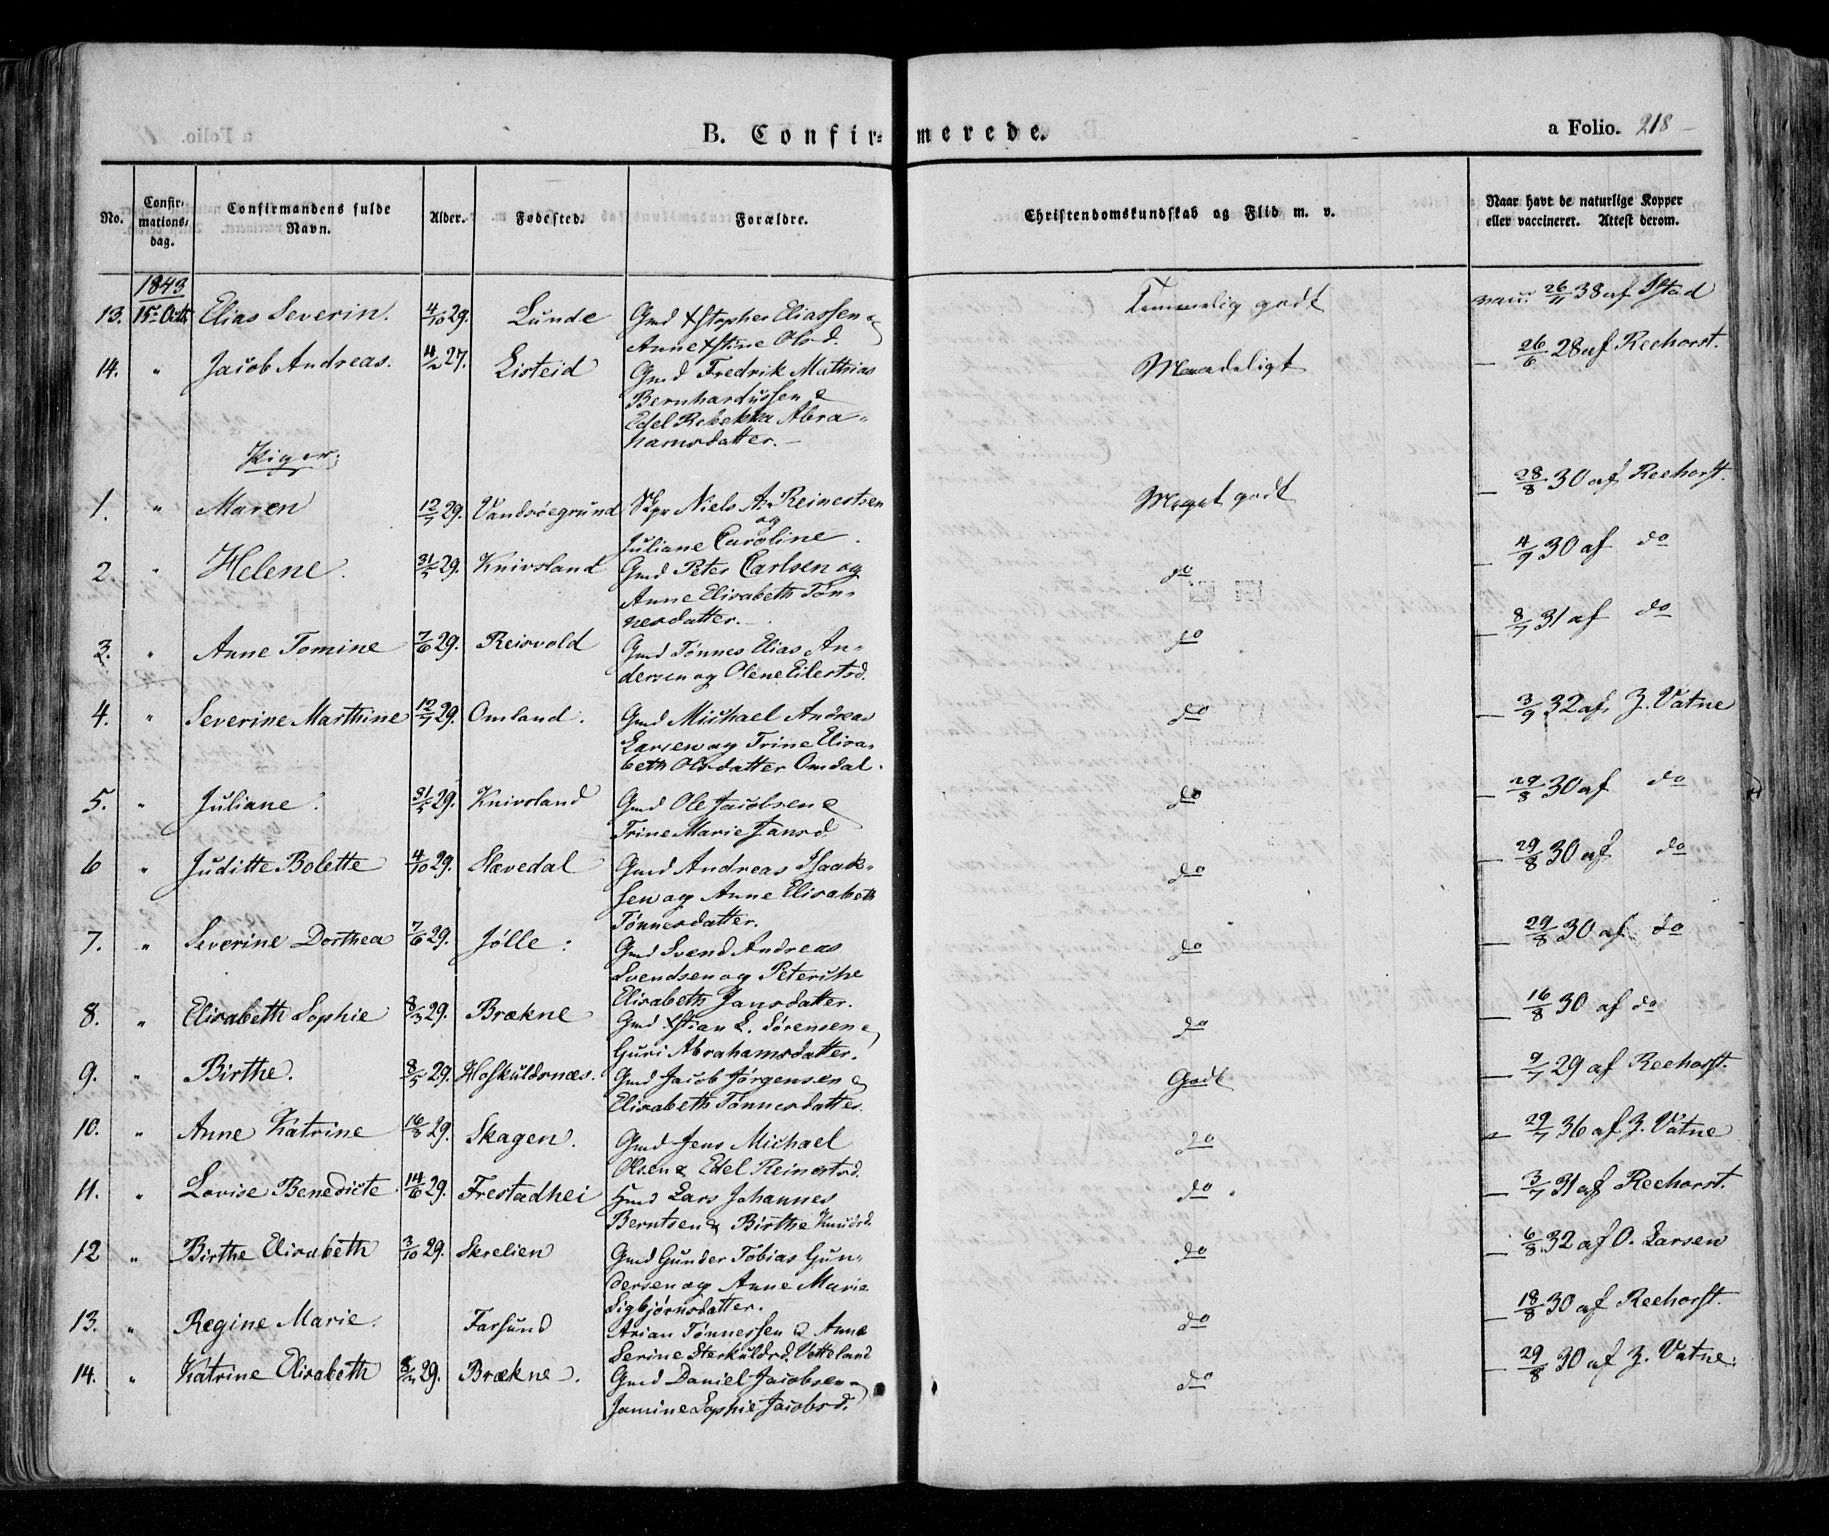 B. Confirmerede.
a Folio. 218
No.
Confirmations-dag.
Confirmandens fulde Navn.
Alder.
Fødested.
Forældre.
Christendomskundskab og Flid m. v.
Naar havt de naturlige Kopper eller vaccineret. Attest derom.
1843
13. 15de Octb. Elias Severin. 4/10 29. Lunde Gmd Xstopher Eliassen & Temmelig godt vacc. 26/11 38 af Stad
Anne Xstine Olsd.
14. " Jacob Andreas. 4/2 27. Listeid Gmd Fredrik Mathias Maadeligt — 26/6 28 af Reehorst.
Bernhardussen &
Edel Rebekka Abra-
hamsdatter. —
Piger.
1. " Maren 12/7 29. Vandsøegrund Skpr Niels A. Reinertsen Meget godt — 28/8 30 af Reehorst.
og
Juliane Caroline.
2. " Helene. 31/5 29. Knivsland Gmd Peter Carlsen og do — 4/9 30 af do
Anne Elisabeth Tøn-
nesdatter.
3. " Anne Tomine 7/6 29. Reisvold Gmd Tønnes Elias An- do — 8/7 31 af do
dersen og Olene Eilertsd.
4. " Severine Marthine 12/7 29. Omland. Gmd Michael Andreas do — 3/9 32 af Z. Vatne
Larsen og Trine Elisa-
beth Olsdatter Omdal.
5. " Juliane. 31/5 29. Knivsland Gmd Ole Jacobsen & do — 29/8 30 af do
Trine Marie Jansd.
6 " Juditte Bolette 4/10 29. Slevedal Gmd Andreas Isaak- do — 29/8 30 af do
sen og Anne Elisabeth
Tønnesdatter.
7. " Severine Dorthea 7/6 29. Jølle: Gmd Svend Andreas do — 29/8 30 af do
Svendsen og Petersine
Elisabeth Jansdatter.
8. " Elisabeth Sophie 8/3 29. Brækne Gmd Xstian L. Sørensen & do — 16/8 30 af do
Guri Abrahamsdatter.
9. " Birthe. 8/5 29. Hoskuldsnæs. Gmd Jacob Jørgensen & Godt — 9/7 29 af Reehorst.
Elisabeth Tønnesdatter.
10. " Anne Katrine 16/8 29. Skagen. Gmd Jens Michael do — 29/7 36 af Z. Vatne
Olsen & Edel Reinertsd.
11. " Lovise Benedicte 14/6 29. Frestadhei Hmd Lars Johannes do — 3/7 31 af Reehorst.
Berntsen & Birthe Knudsd.
12 " Birthe Elisabeth 3/10 29. Skrelien Gmd Gunder Tobias Gun- do — 6/8 32 af O. Larsen
dersen og Anne Marie
Sigbjørnsdatter.
13. " Regine Marie. Farsund Arian Tønnessen & Anne do — 18/8 30 af Reehorst.
Serine Sterkuldsd. Vatteland
14. " Katrine Elisabeth 29. Brækne. Gmd Daniel Jacobsen & do — 29/8 30 af Z. Vatne.
Jomine Sophie Jacobsd.